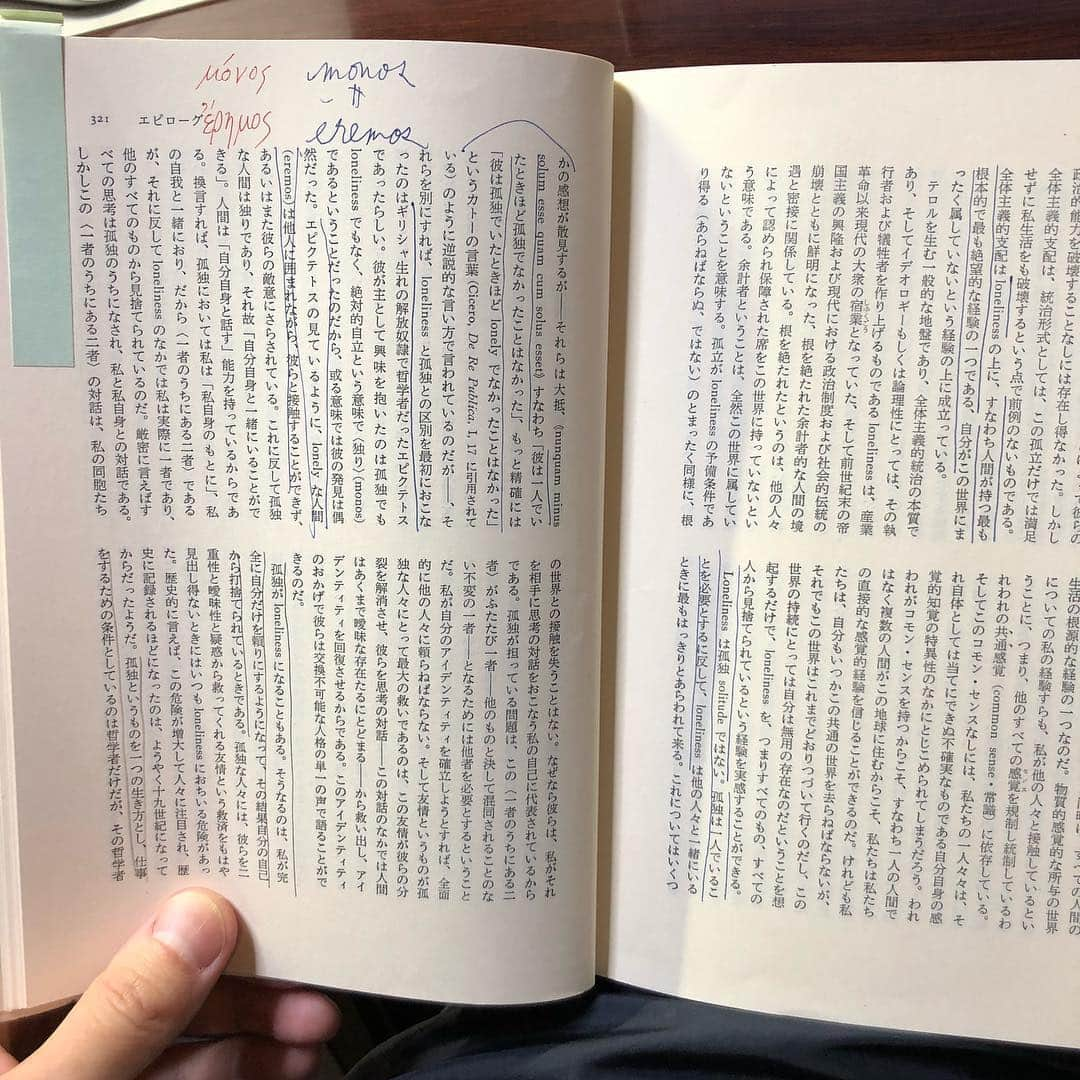 政治的能力を破壊することなしには存在し得なかった。しかし
全体主義的支配は、統治形式としては、この孤立だけでは満足
せずに私生活をも破壊するという点で前例のないものである。
全体主義的支配は loneliness の上に、すなわち人間が持つ最も
根本的で最も絶望的な経験の一つである、自分がこの世界にま
ったく属していないという経験の上に成立っている。
テロルを生む一般的な地盤であり、全体主義的統治の本質で
あり、そしてイデオロギーもしくは論理性にとっては、その執
行者および犠牲者を作り上げるものである loneliness は、産業
革命以来現代の大衆の宿業となっていた、そして前世紀末の帝
国主義の興隆および現代における政治制度および社会的伝統の
崩壊とともに鮮明になった、根を絶たれた余計者的な人間の境
遇と密接に関係している。根を絶たれたというのは、他の人々
によって認められ保障された席をこの世界に持っていないとい
う意味である。余計者ということは、全然この世界に属してい
ないということを意味する。孤立が loneliness の予備条件であ
り得る（あらねばならぬ、ではない）のとまったく同様に、根
すべての人間の
生活の根源的な経験の一つなのだ。物質的感覚的な所与の世界
についての私の経験すらも、私が他の人々と接触しているとい
うことに、つまり、他のすべての感覚を規制し統制しているわ
れわれの共通感覚（common sense・常識）に依存している。
そしてこのコモン・センスなしには、私たちの一人々々は、そ
れ自体としては当てにできぬ不確実なものである自分自身の感
覚的知覚の特異性のなかにとじこめられてしまうだろう。われ
われがコモン・センスを持つからこそ、すなわち一人の人間で
はなく複数の人間がこの地球に住むからこそ、私たちは私たち
の直接的な感覚的経験を信じることができるのだ。けれども私
たちは、自分もいつかこの共通の世界を去らねばならないが、
それでもこの世界はこれまでどおりつづいて行くのだし、この
世界の持続にとっては自分は無用の存在なのだということを想
起するだけで、loneliness を、つまりすべてのもの、すべての
人から見捨てられているという経験を実感することができる。
Loneliness は孤独 solitude ではない。孤独は一人でいるこ
とを必要とするに反して、loneliness は他の人々と一緒にいる
ときに最もはっきりとあらわれて来る。これについてはいくつ
μόνος monos
ἔρημος eremos
321 エピローグ
かの感想が散見するが――それらは大抵、《nunquam minus
solum esse quam cum solus esset》すなわち「彼は一人でい
たときほど孤独でなかったことはなかった」、もっと精確には
「彼は孤独でいたときほど lonely でなかったことはなかった」
というカトーの言葉（Cicero, De Re Publica, I, 17 に引用されて
いる）のように逆説的な言い方で言われているのだが――、そ
れらを別にすれば、loneliness と孤独との区別を最初におこな
ったのはギリシャ生れの解放奴隷で哲学者だったエピクテトス
であったらしい。彼が主として興味を抱いたのは孤独でも
loneliness でもなく、絶対的自立という意味で〈独り〉(monos)
であるということだったのだから、或る意味では彼の発見は偶
然だった。エピクテトスの見ているように、lonely な人間
(eremos) は他人に囲まれながら、彼らと接触することができず、
あるいはまた彼らの敵意にさらされている。これに反して孤独
な人間は独りであり、それ故「自分自身と一緒にいることがで
きる」。人間は「自分自身と話す」能力を持っているからであ
る。換言すれば、孤独においては私は「私自身のもとに」、私
の自我と一緒におり、だから〈一者のうちにある二者〉である
が、それに反して loneliness のなかでは私は実際に一者であり、
他のすべてのものから見捨てられているのだ。厳密に言えばす
べての思考は孤独のうちになされ、私と私自身との対話である。
しかしこの〈一者のうちにある二者〉の対話は、私の同胞たち
の世界との接触を失うことはない。なぜなら彼らは、私がそれ
を相手に思考の対話をおこなう私の自己に代表されているから
である。孤独が担っている問題は、この〈一者のうちにある二
者〉がふたたび一者――他のものと決して混同されることのな
い不変の一者――となるためには他者を必要とするということ
だ。私が自分のアイデンティティを確立しようとすれば、全面
的に他の人々に頼らねばならない。そして友情というものが孤
独な人々にとって最大の救いであるのは、この友情が彼らの分
裂を解消させ、彼らを思考の対話――この対話のなかでは人間
はあくまで曖昧な存在たるにとどまる――から救い出し、アイ
デンティティを回復させるからである。このアイデンティティ
のおかげで彼らは交換不可能な人格の単一の声で語ることがで
きるのだ。
孤独が loneliness になることもある。そうなるのは、私が完
全に自分だけを頼りにするようになって、その結果自分の自己
から打捨てられているときである。孤独な人々には、彼らを二
重性と曖昧性と疑惑から救ってくれる友情という救済をもはや
見出し得ないときにはいつも loneliness におちいる危険があっ
た。歴史的に言えば、この危険が増大して人々に注目され、歴
史に記録されるほどになったのは、ようやく十九世紀になって
からだったようだ。孤独というものを一つの生き方とし、仕事
をするための条件としているのは哲学者だけだが、その哲学者